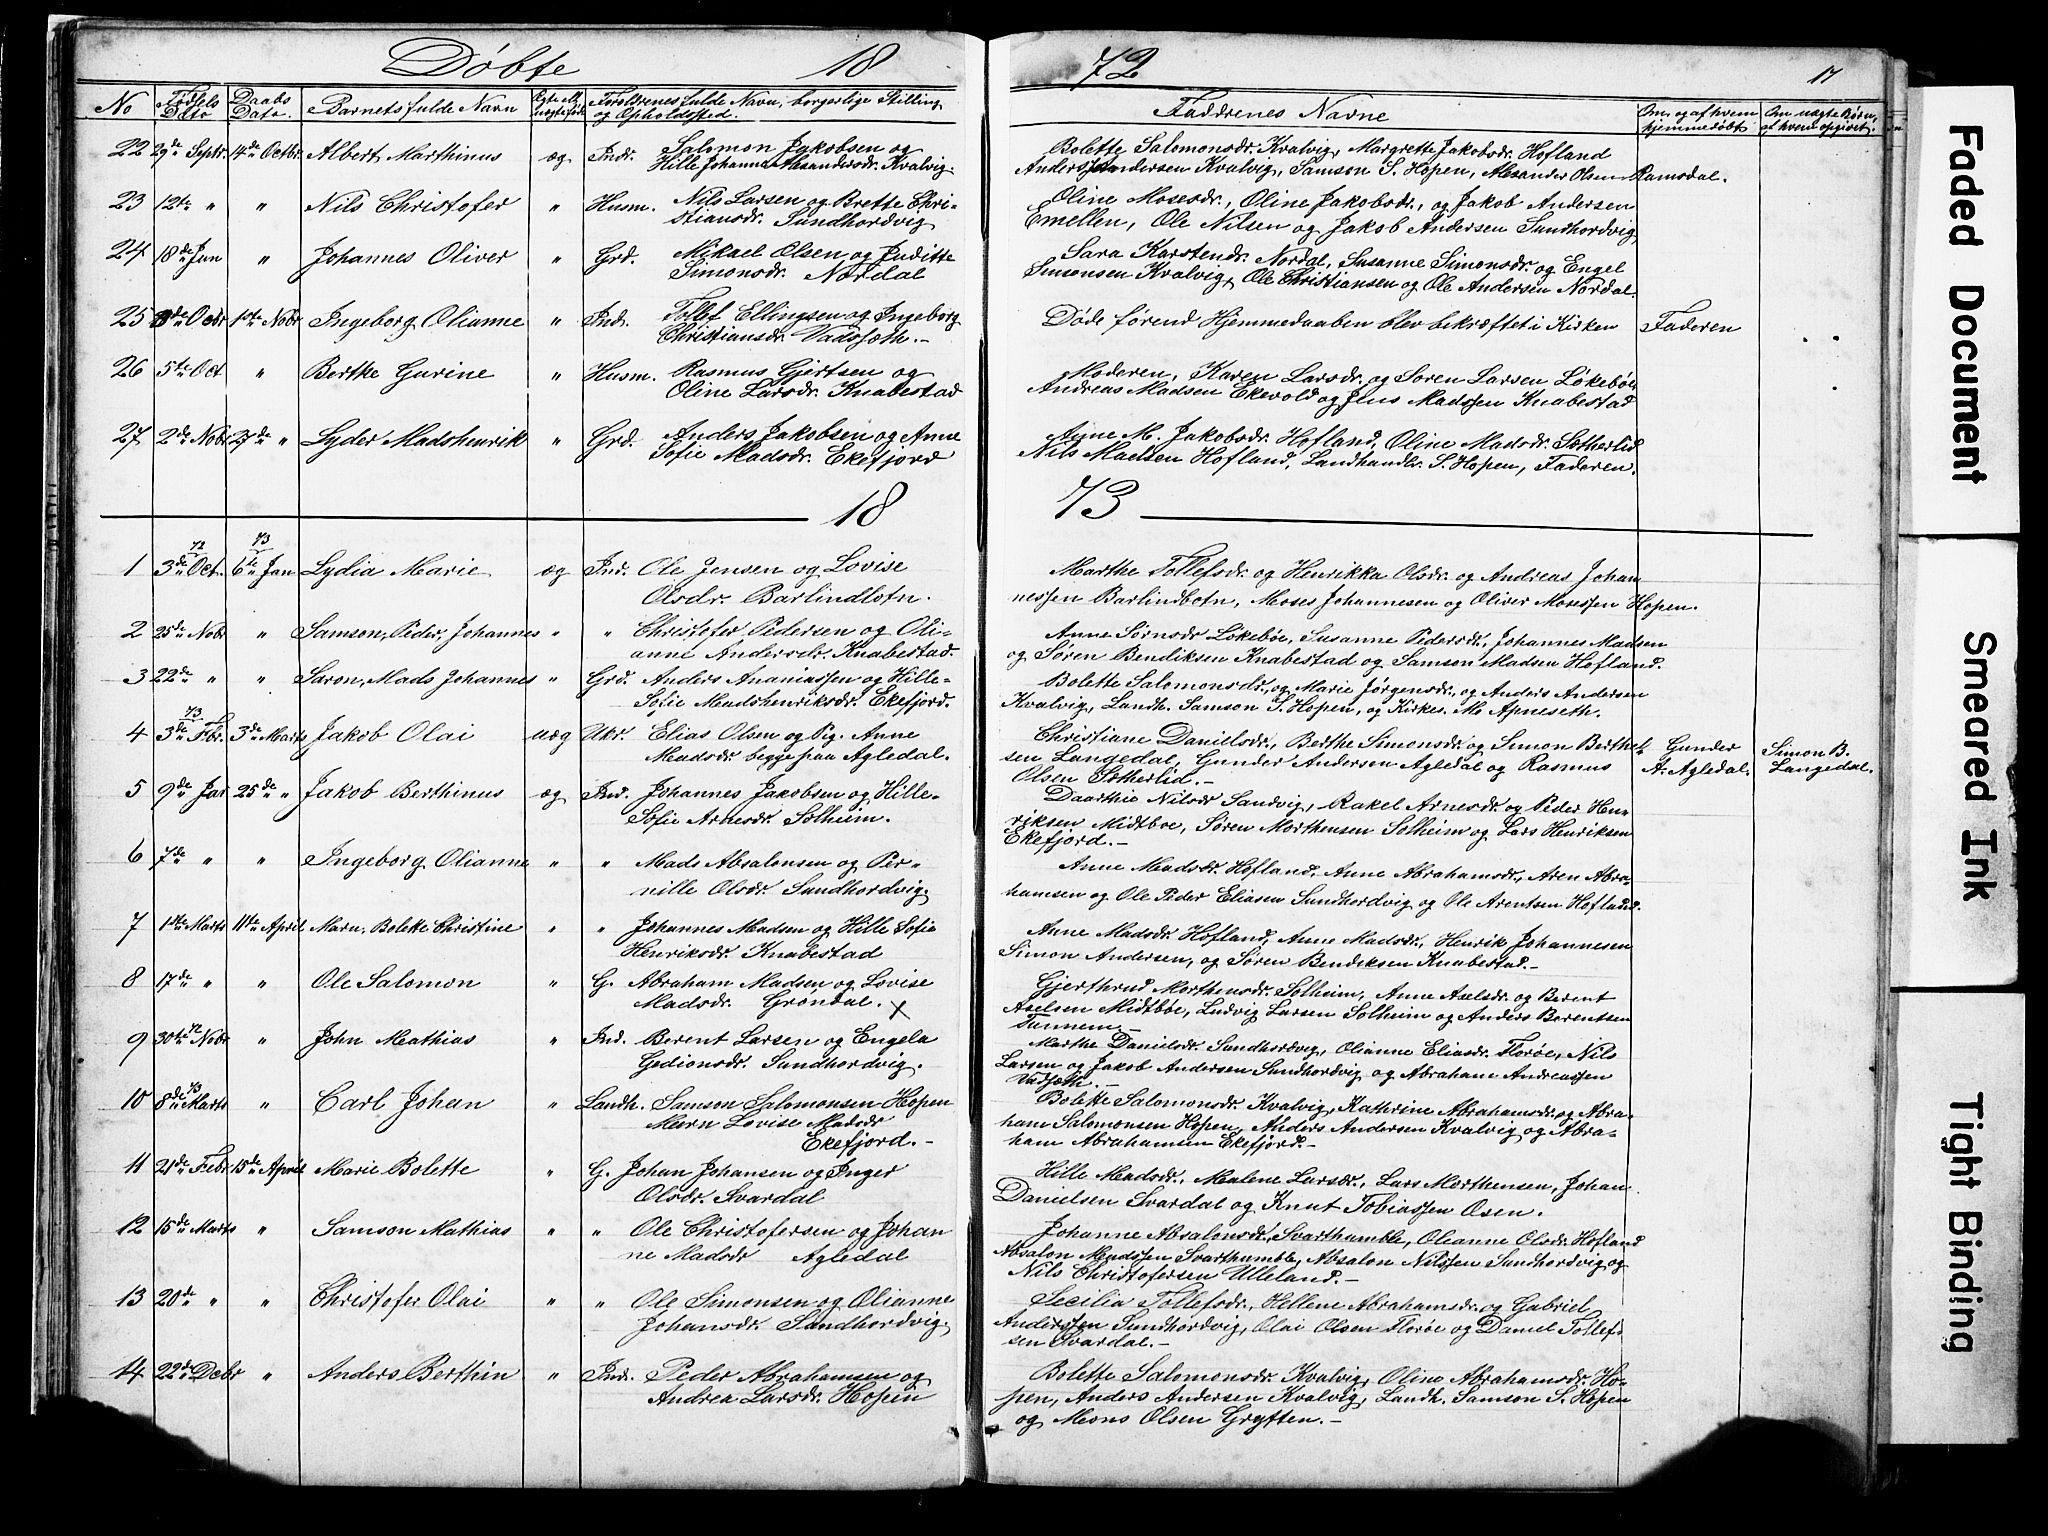 Døbte 18 72 17
No Fødsels Dato Daabs Dato. Barnets fulde Navn Ægte ell. uægte født Foreldrenes fulde Navn, borgerlige Stilling og Opholdssted. Faddrenes Navne Om og af hvem hjemmedøbt Om uægte Børn, af hvem opgivet.
22 29de Septr. 14de Octbr. Albert Marthinus æg Indr. Salomon Jakobsen og Bolette Salomonsdr. Kvalvig, Margrette Jakobsdr. Hofland
Hille Johanna Alexandersdr. Kvalvig. Anders Andersen Kvalvig, Samson S. Hopen, Alexander Olsen Ramsdal.
23 12te " " Nils Christofer " Husm. Nils Larsen og Brette Chri- Oline Mosesdr., Oline Jakobsdr., og Jakob Andersen
stiansdr. Sundhordvig Emellen, Ole Nilsen og Jakob Andersen Sundhordvig
24 18de Jun " Johannes Oliver " Grd. Mikael Olsen og Juditte Sara Karstendr. Nordal, Susanne Simonsdr. og Engel
Simonsdr. Nordal Simonsen Kvalvig, Ole Christiansen og Ole Andersen Nordal.
25 8de Octr 1ste Nobr Ingeborg Olianne " Ind. Tollef Ellingsen og Ingeborg Døde førend Hjemmedaaben blev bekræftet i Kirken Faderen
Christiansdr. Vadsjøth.-
26 5te Oct " Berthe Gurine " Husm. Rasmus Gjertsen og Moderen, Karen Larsdr. og Søren Larsen Løkebøe
Oline Larsdr. Knabestad Andreas Madsen Ekevold og Jens Madssen Knabestad
27 2de Nobr 27de " Lyder Madshenrik " Grd. Anders Jakobsen og Anne Anne M. Jakobsdr. Hofland, Oline Madsdr. Sætherlid
Sofie Madsdr. Ekefjord Nils Madsen Hofland, Landhandlr. S. Hopen, Faderen.
18 73
72 73
1 3de Oct. 6de Jan Lydia Marie æg Ind. Ole Jensen og Lovise Marthe Tollefsdr. og Henrikka Olsdr. og Andreas Johan
Olsdr. Barlindbotn. nessen Barlindbotn, Moses Johannesen og Oliver Mosessen Hopen.
2 25de Nobr " Samson, Peder, Johannes " " Christofer Pedersen og Oli- Anne Sørnsdr Løkebøe, Susanne Pedersdr., Johannes Madsen
anne Andersdr. Knabestad. og Søren Bendiksen Knabestad og Samson Madsen Hofland.
3 22de " " Saron, Mads Johannes " Grd. Anders Ananiassen og Hille- Bolette Salomonsdr., og Marie Jørgensdr., og Anders Andersen
Sofie Madshenriksdr. Ekefjord. Kvalvig, Landh. Samson S. Hopen, og Kirkes. M. Apneseth.
73
4 3de Fbr. 3de Marts Jakob Olai uæg Ukr. Elias Olsen og Pig. Anne Christiane Danielsdr., Berthe Simonsdr. og Simon Berthel- Gunder Simon B.
Madsdr. begge paa Agledal. sen Langedal, Gunder Andersen Agledal og Rasmus A. Agledal. Langedal.
Olsen Sætherlid.-
5 9de Jar 25de " Jakob Berthinus æg Ind. Johannes Jakobsen og Hille- Daarthie Nilsdr Sandvig, Rakel Arnesdr. og Peder Hen-
Sofie Arnesdr. Solheim. riksen Midtboe, Søren Morthensen Solheim og Lars Henriksen
Ekefjord.-
6 7de " " Ingeborg Olianne " " Mads Absalonsen og Per- Anne Madsdr. Hofland, Anne Abrahamsdr., Aren Abra-
nille Olsdr. Sundhordvig. hamsen og Ole Peder Eliasen Sundhordvig og Ole Arentsen Hofland.
7 1ste Marts 11te April Marn, Bolette Christine " " Johannes Madsen og Hille Sofie Anne Madsdr. Hofland, Anne Madsdr., Henrik Johannesen
Henriksdr. Knabestad Simon Andersen, og Søren Bendiksen Knabestad.-
8 17de " " Ole Salomon " G. Abraham Madsen og Lovise Gjerthrud Morthensdr. Solheim, Anne Axelsdr. og Berent
Madsdr. Grøndal. x Axelsen Midtbøe, Ludvig Larsen Solheim og Anders Berentsen
Tunnem.-
72
9 30te Nobr " John Mathias " Ind. Berent Larsen og Engela Marthe Danielsdr. Sundhordvig, Olianne Eliasdr. Florøe, Nils
Gedionsdr. Sundhordvig. Larsen og Jakob Andersen Sundhordvig og Abraham Andreassen
Vadsjøth.-
73
10 8de Marts " Carl Johan " Landh. Samson Salomonsen Hopen Bolette Salomonsdr. Kvalvig, Kathrine Abrahamsdr. og Abra-
Marn Lovise Madsdr ham Salomonsen Hopen, Anders Andersen Kvalvig og Abra-
Ekefjord.- ham Abrahamsen Ekefjord.-
11 21de Febr 15de April Marie Bolette " G. Johan Johansen og Inger Hille Madsdr., Malene Larsdr., Lars Morthensen, Johan
Olsdr. Svardal Danielsen Svardal og Knut Tobiassen Osen.
12 15de Marts " Samson Mathias " " Ole Christofersen og Johan Johanne Absalonsdr., Svarthumble, Olianne Olsdr. Hofland
ne Madsdr Agledal Absalon Madssen Svarthumble, Absalon Nilssen Sundhordvig og
Nils Christofersen Ulleland.-
13 20de " " Christofer Olai " " Ole Simonsen og Olianne Secilia Tollefsdr., Hellene Abrahamsdr. og Gabriel
Johansdr. Sandhordvig. Anderssen Sundhordvig, Olai Olsen Florøe og Daniel Tollef-
sen Svardal.-
14 22de Debr " Anders Berthin " Ind. Peder Abrahamsen og Bolette Salomonsdr. Kvalvig, Oline Abrahamsdr. Ho-
Andrea Larsdr. Hopen pen, Anders Andersen Kvalvig, Landh. Samson S. Hopen
og Mons Olsen Grytten.-
Faded Document
Smeared Ink
Tight Binding